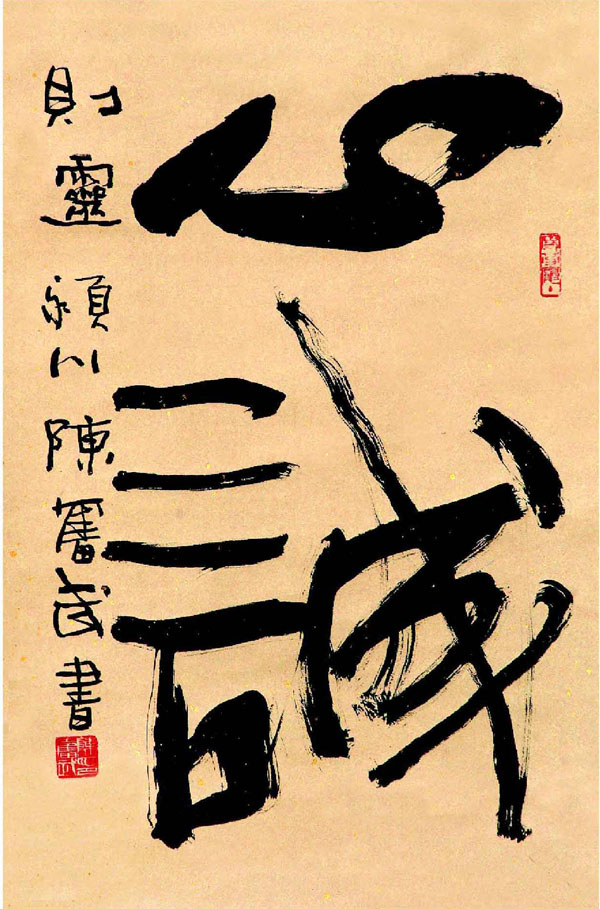 心誠
則靈 潁川陳奮武書